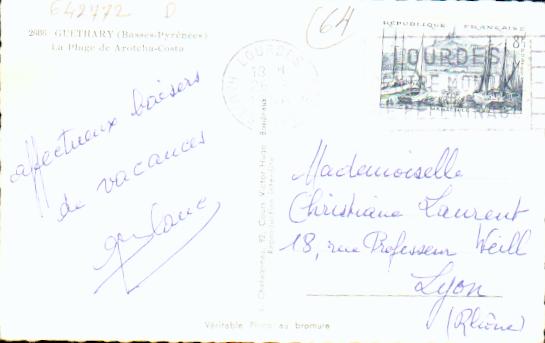 642772 D
(64
2686 - GUETHARY (Basses-Pyrénées)
La Plage de Arotcha-Costa
LOURDES
18 H
RÉPUBLIQUE FRANÇAISE
8F
LOURDES
affectueux baisers
de vacances
Mademoiselle
Christiane Laurent
18, rue Professeur Weill
Lyon
(Rhône)
92, Cours Victor Hugo - Bordeaux
Reproduction interdite
Véritable Photo au bromure